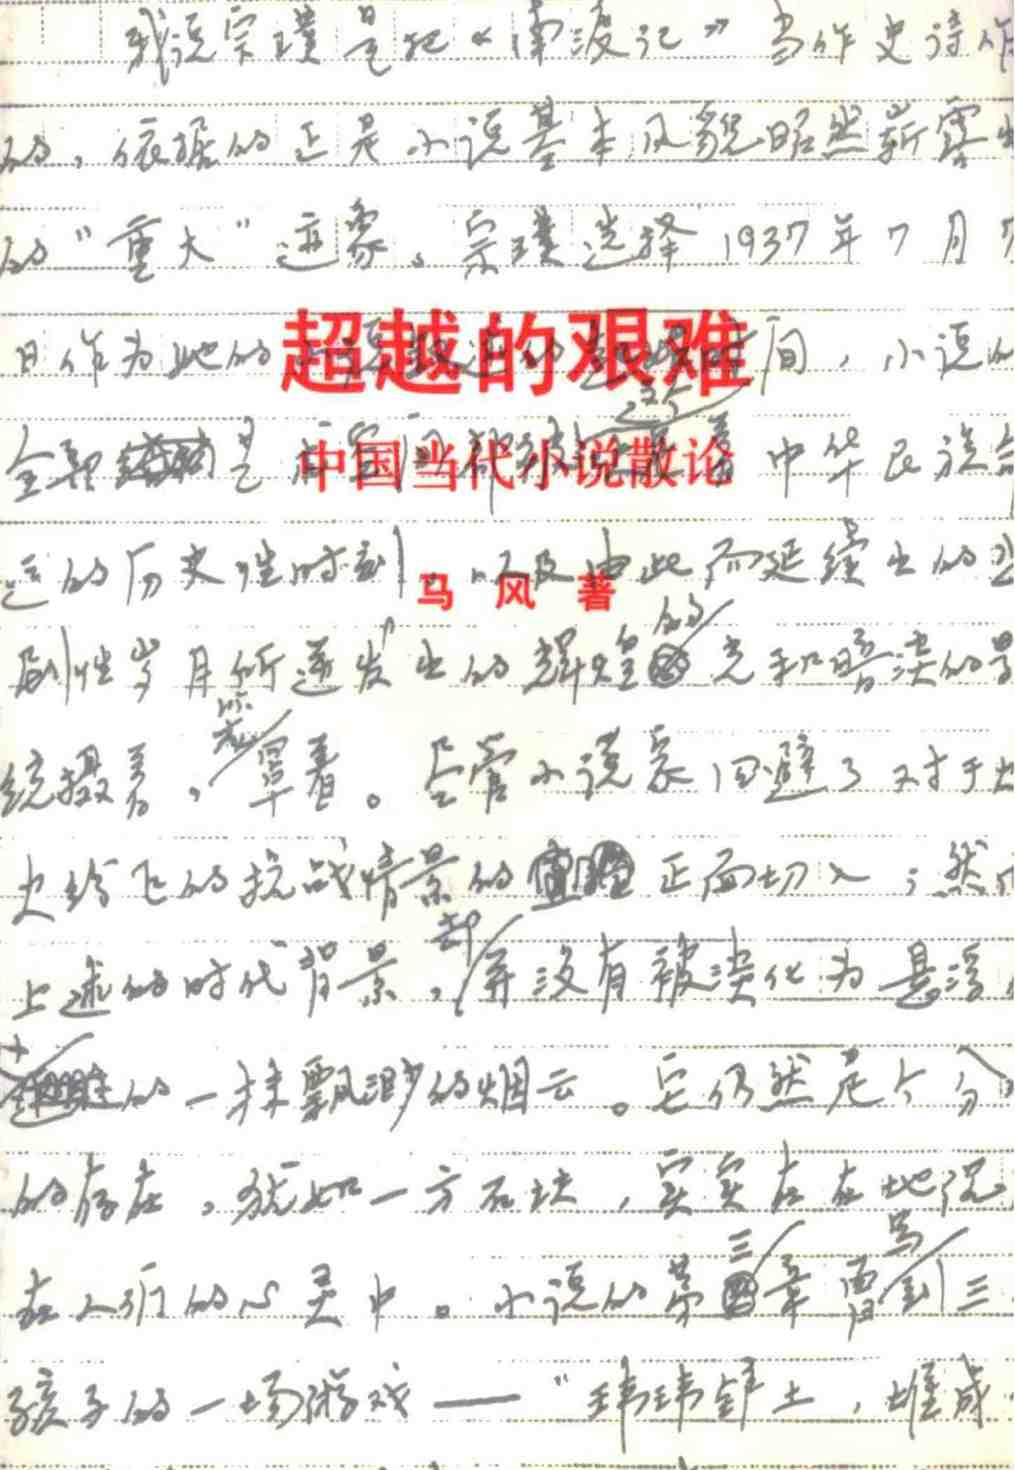 我说宗璞是把《南渡记》当作史诗作
的，依据的正是小说基本风貌昭然崭露出
的“重大”迹象。宗璞选择1937年7月7
超越的艰难
日作为她的 间，小说的
中国当代小说散论
全部 是 中华民族命
运的历史性时刻，以及由此而延续出的悲
马风著
剧性岁月所迸发出的辉煌的光和暗淡的影
统摄着，笼罩着。尽管小说家回避了对于炮
火纷飞的抗战情景的 正面切入；然而
上述的时代背景，却并没有被淡化为悬浮
的一抹飘渺的烟云。它仍然是个分
的存在，犹如一方石块，实实在在地沉
在人们的心灵中。小说的第三章曾写到三
孩子的一场游戏——“玮玮铲土，堆成